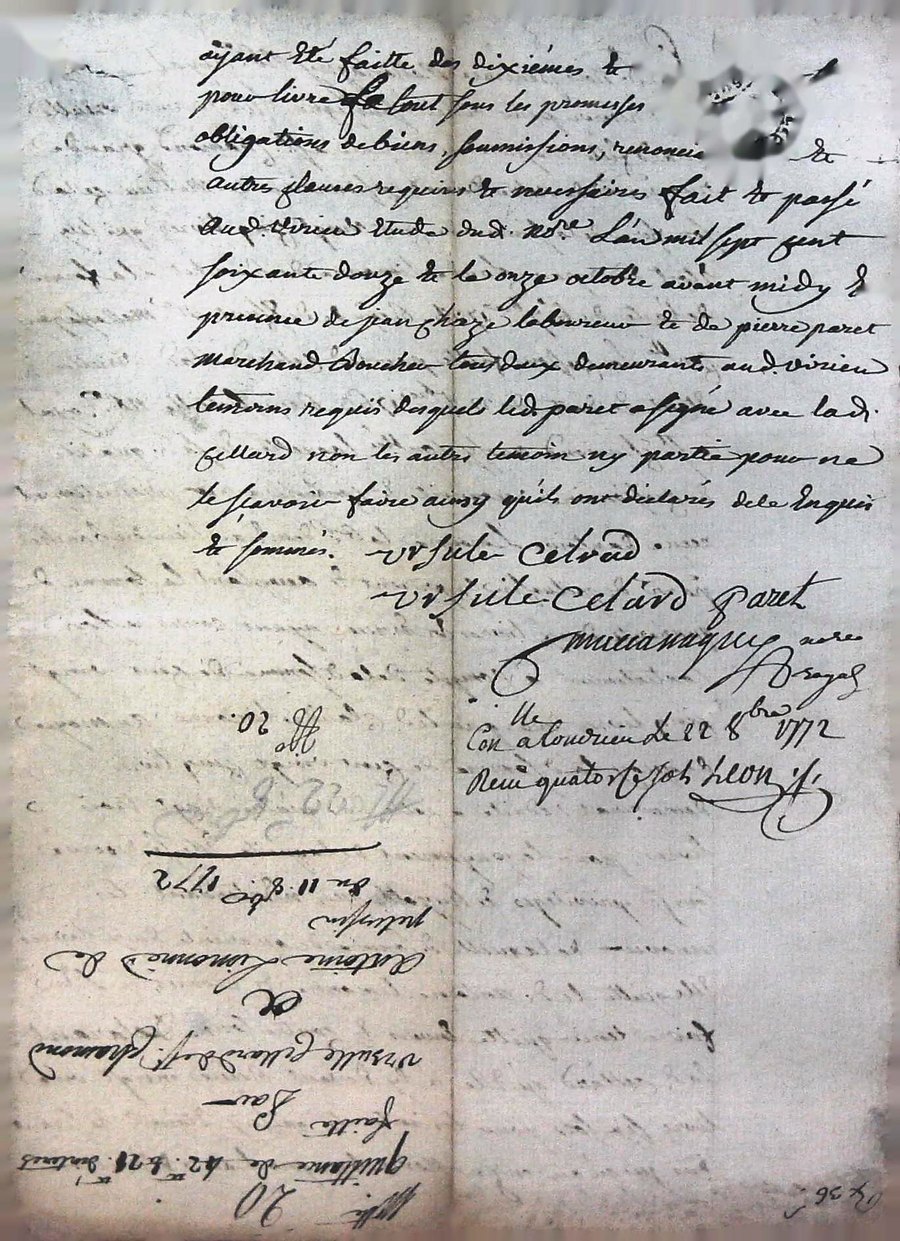 ayant été faitte des dixiémes et
pour livre le tout sous les promesses
obligations de biens, soumissions, renoncia et
autres clauses requises et necessaires fait et passé
aud. Virieu etude dud. no.re L'an mil sept cent
soixante douze et le onze octobre avant midy E
presence de jean Chaze laboureur et de pierre paret
marchand Boucher tous deux demeurants aud. Virieu
temoins requis desquels led. paret a signé avec lad.
Cellard non les autres temoin ny partie pour ne
le scavoir faire ainsy qu'ils ont déclarés de ce Enquis
et sommés. ursule Celard
ursule Celard paret
no.re
royal
Con.lle a Condrieu le 22 8bre 1772
Reçu quatorse sols
20
quittance de 42.# & 21.# d'interets
faitte
Par
Ursulle Cellard de St. chamond
A
Antoine Limonne de
pelussin
Du 11. 8bre 1772
20.
36